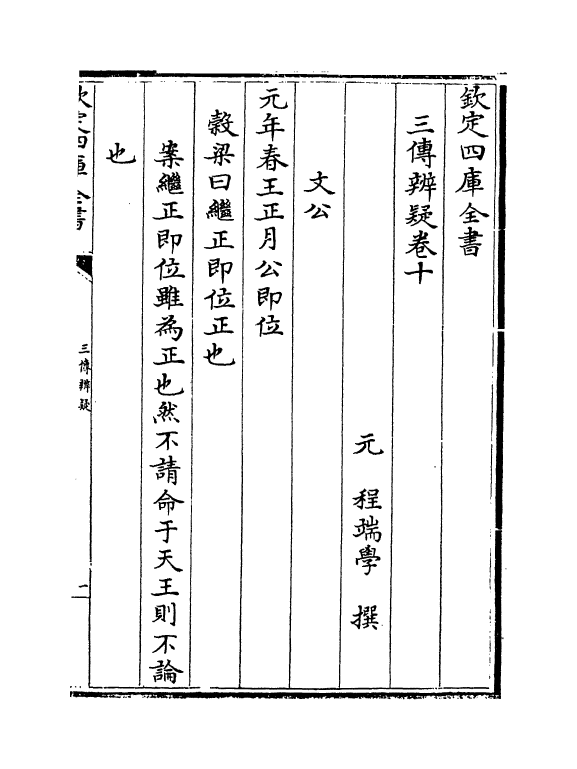 欽定四庫全書
三傳辨疑卷十
元　程端學　撰
文公
元年春王正月公即位
穀梁曰繼正即位正也
案繼正即位雖為正也然不請命于天王則不論
也
欽定四庫全書
三傳辨疑
一